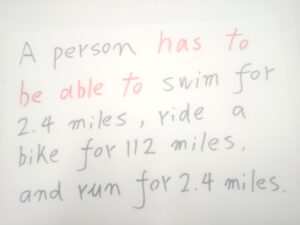 A person has to
be able to swim for
2.4 miles, ride a
bike for 112 miles.
and run for 2.4 miles.